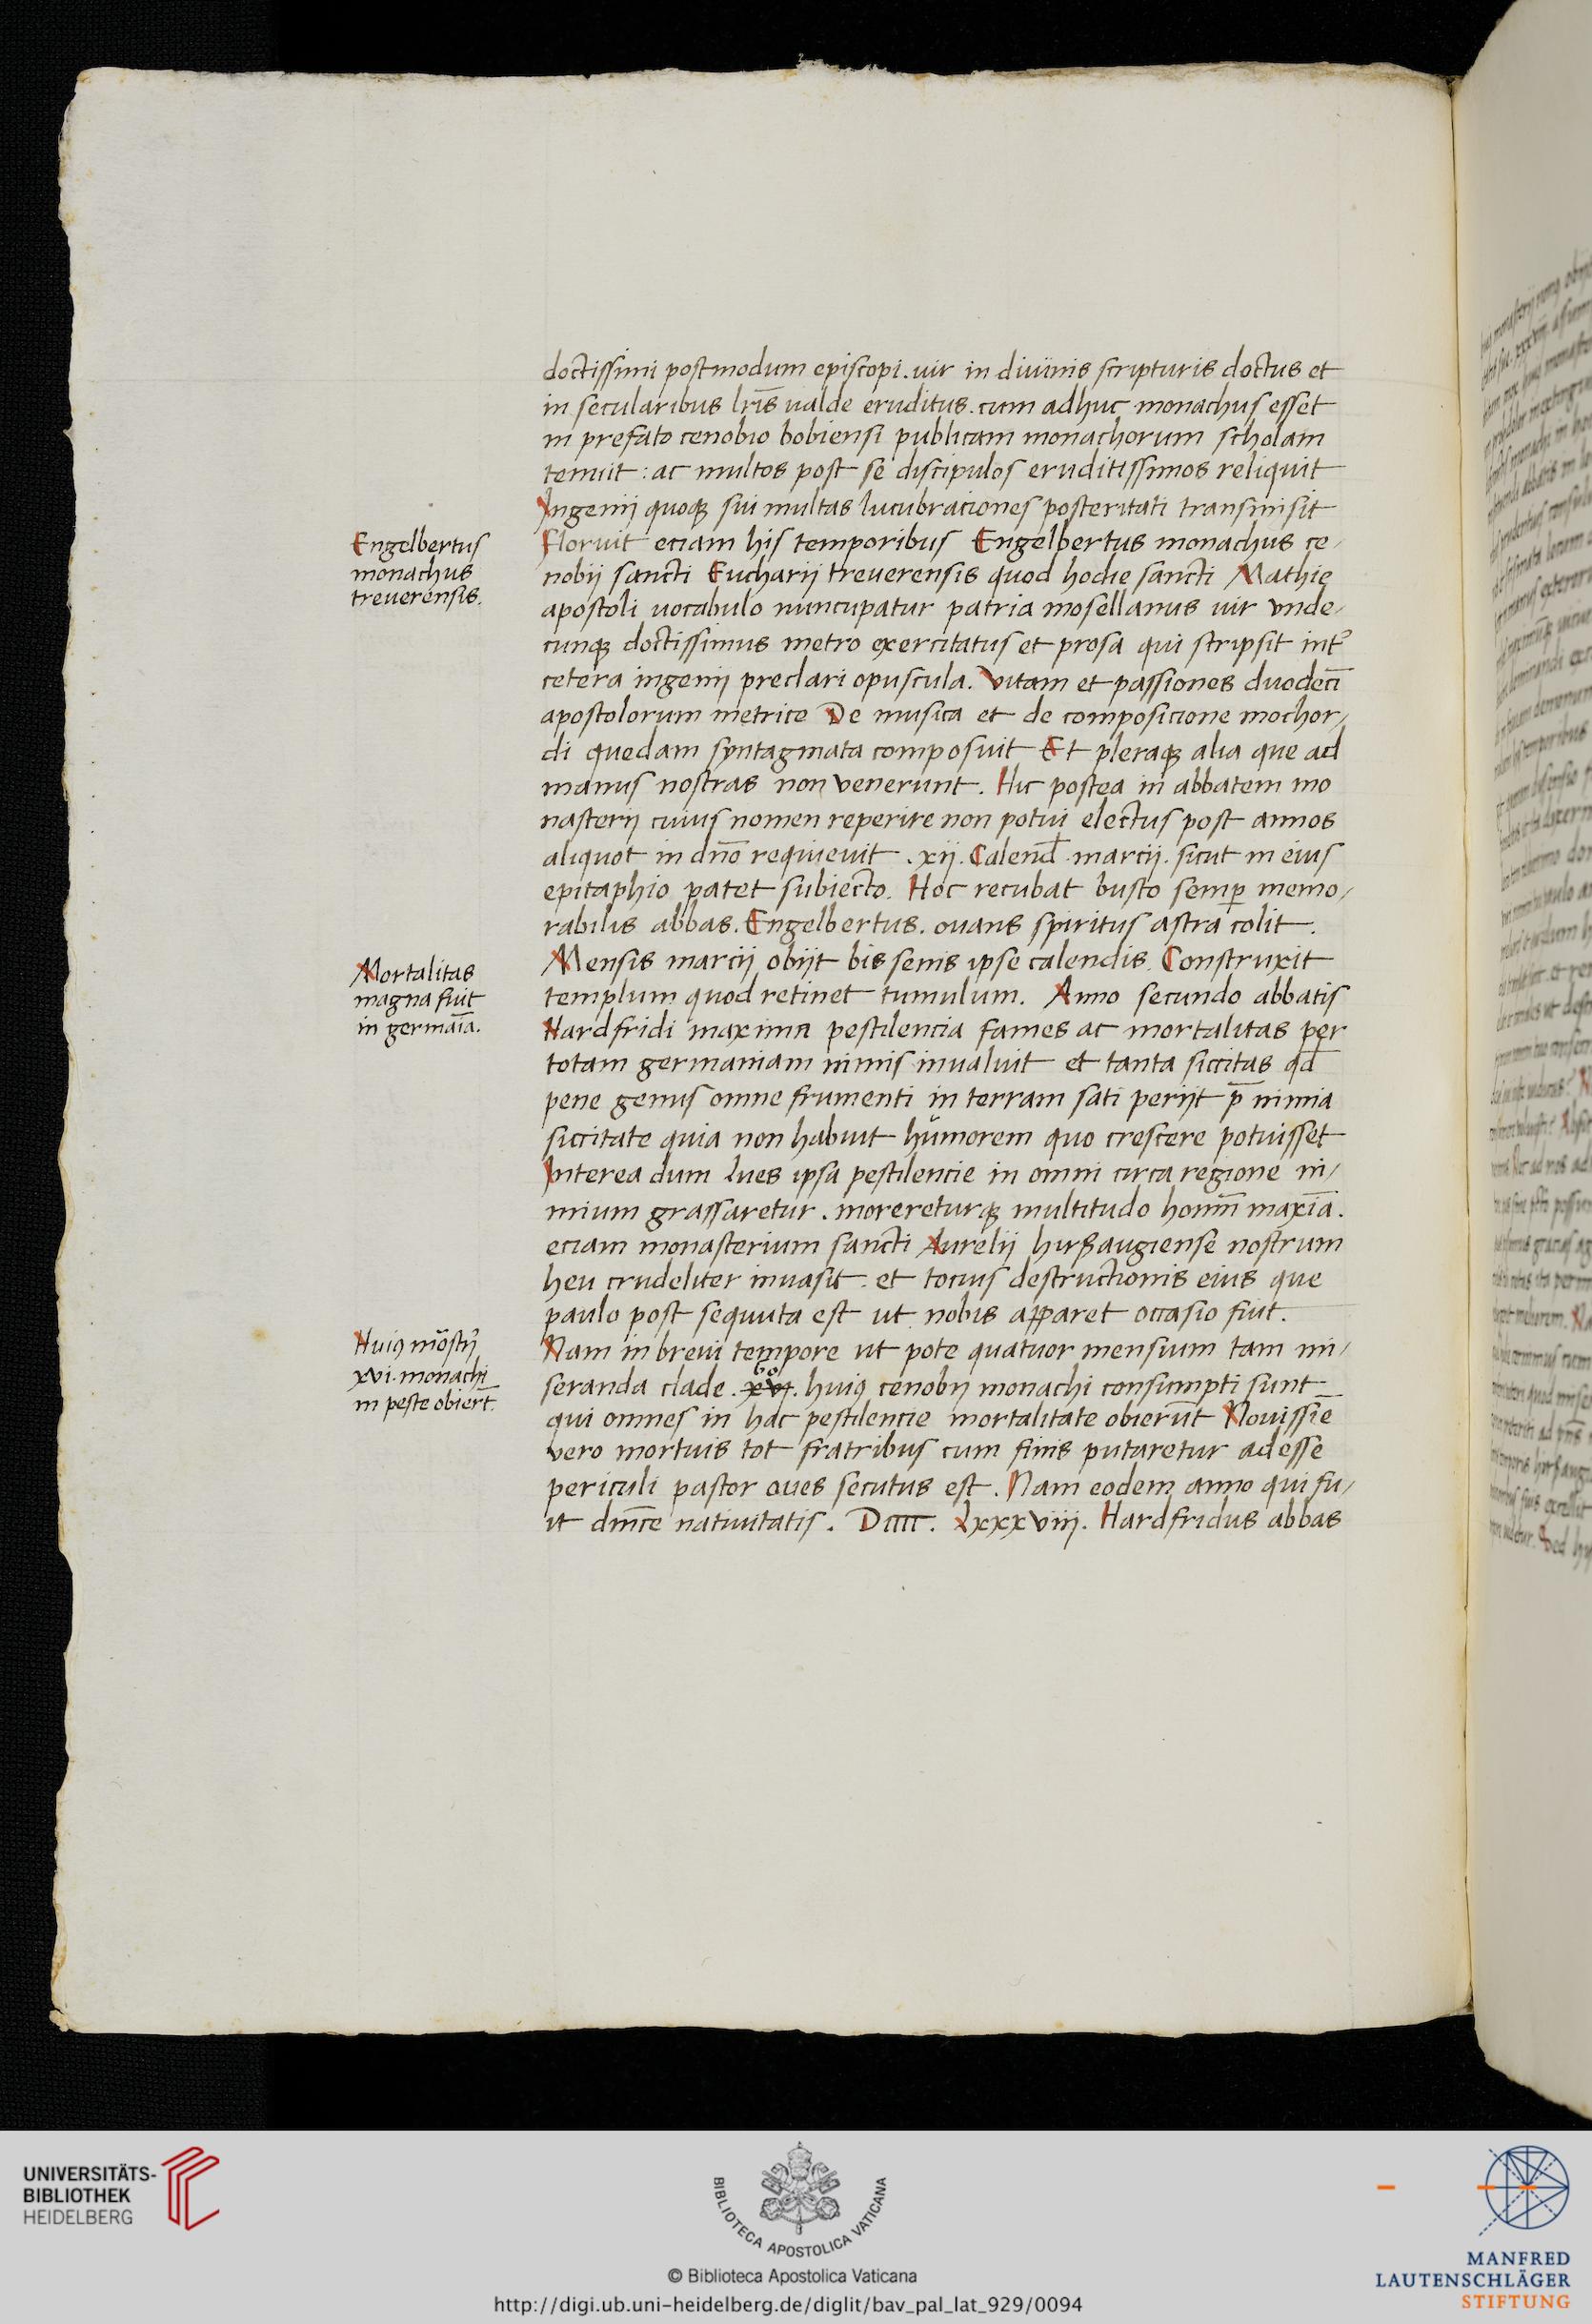 doctissimi postmodum episcopi. uir in diuinis scripturis doctus et
in secularibus lr̄is ualde eruditus. cum adhuc monachus esset
in prefato cenobio bobiensi publicam monachorum scholam
tenuit: ac multos post se discipulos eruditissimos reliquit
Ingenij quoqꝫ sui multas lucubraciones posteritati transmisit
Engelbertus
monachus
treuerensis.
Floruit eciam his temporibus Engelbertus monachus ce/
nobij sancti Eucharij treuerensis quod hodie sancti Mathię
apostoli uocabulo nuncupatur patria mosellanus uir vnde/
cunqꝫ doctissimus metro exercitatus et prosa qui scripsit int᷑
cetera ingenij preclari opuscula. Vitam et passiones duodecī
apostolorum metrice De musica et de composicione mochor/
di quedam syntagmata composuit Et pleraqꝫ alia que ad
manus nostras non venerunt. Hic postea in abbatem mo
nasterij cuius nomen reperire non potui electus post annos
aliquot in dn̄o requieuit .xij. Calend̄ marcij. sicut in eius
epitaphio patet subiecto. Hoc recubat busto semꝑ memo/
rabilis abbas. Engelbertus. ouans spiritus astra colit.
Mortalitas
magna fuit
in germaīa.
Mensis marcij obijt bis senis ipse calendis. Construxit
templum quod retinet tumulum. Anno secundo abbatis
Hardfridi maxima pestilencia fames ac mortalitas per
totam germaniam nimis inualuit et tanta siccitas qd̄
pene genus omne frumenti in terram sati perijt p̄ nimia
siccitate quia non habuit humorem quo crescere potuisset
Interea dum lues ipsa pestilencie in omni circa regione ni/
mium grassaretur. morereturqꝫ multitudo homīn maxīa.
eciam monasterium sancti Aurelij hirßaugiense nostrum
heu crudeliter inuasit. et tocius destructionis eius que
paulo post sequuta est ut nobis apparet occasio fuit.
Huiꝰ mōstrij
xvi. monachi
in peste obierūt.
Nam in breui tempore ut pote quatuor mensium tam mi/
seranda clade .xvi. 60 huiꝰ cenobij monachi consumpti sunt
qui omnes in hac pestilencie mortalitate obierūt Nouissīe
vero mortuis tot fratribus cum finis putaretur adesse
periculi pastor oues secutus est. Nam eodem anno qui fu/
it dn̄ice natiuitatis. Dcccc. Lxxxviij. Hardfridus abbas
UNIVERSITÄTS-
BIBLIOTHEK
HEIDELBERG
BIBLIOTECA APOSTOLICA VATICANA
© Biblioteca Apostolica Vaticana
http://digi.ub.uni-heidelberg.de/diglit/bav_pal_lat_929/0094
MANFRED
LAUTENSCHLÄGER
STIFTUNG